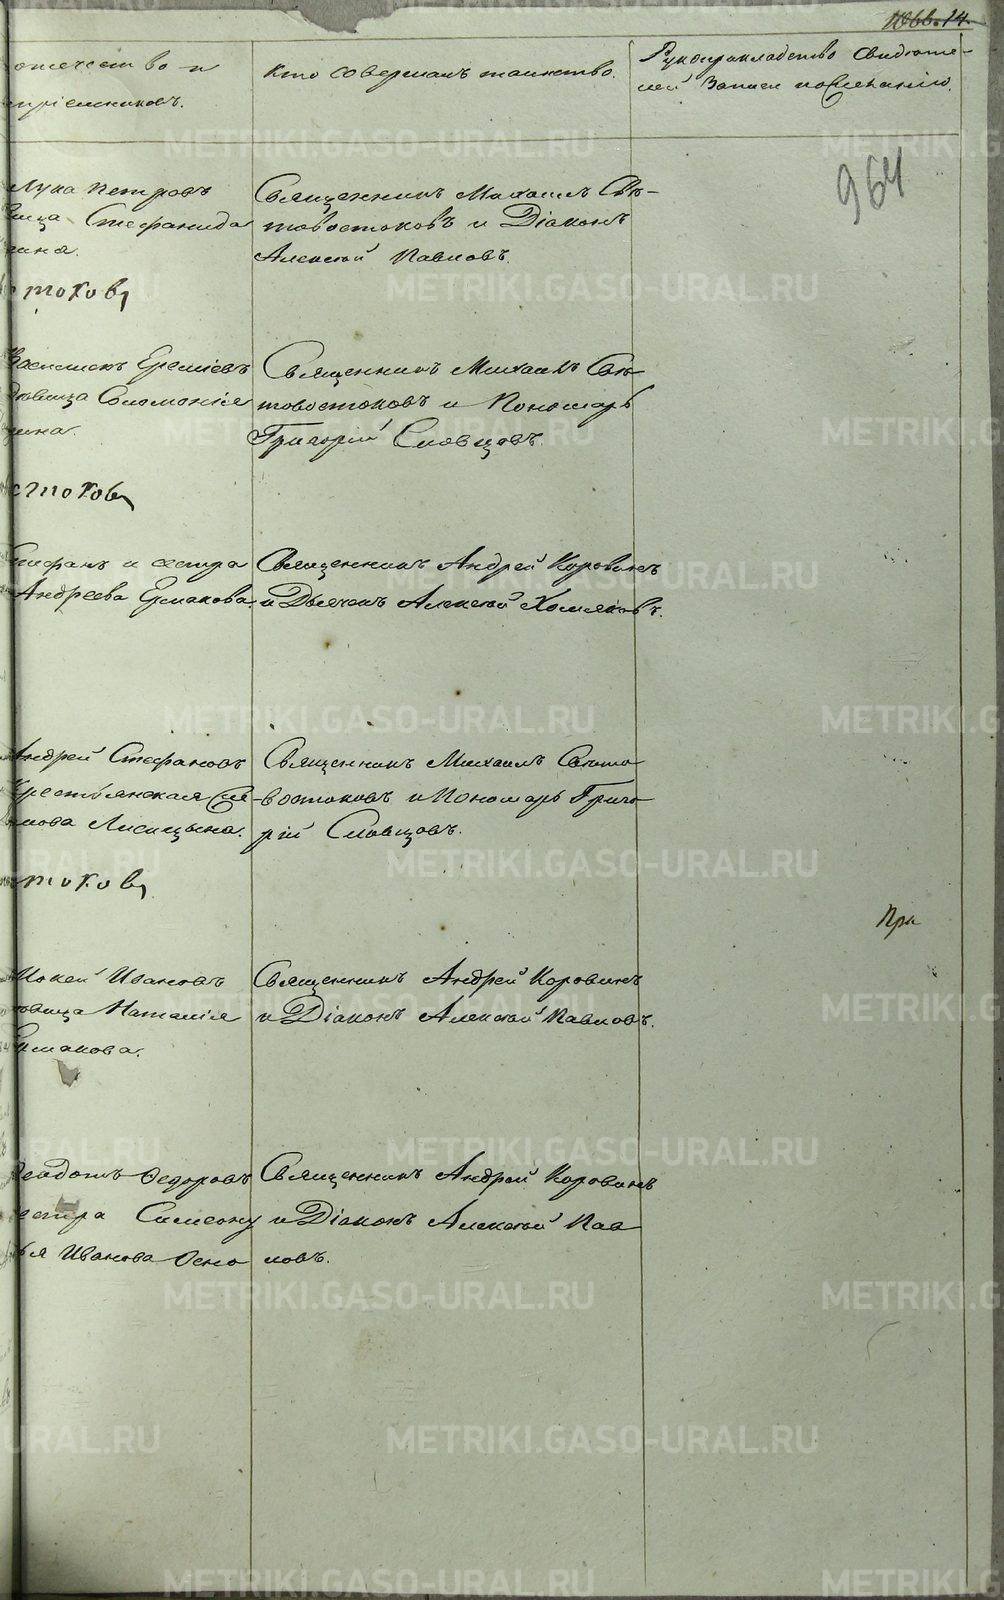 1066. 14.
отечество и
воспріемниковъ.
Кто совершалъ таинство.
Рукоприкладство свидѣте-
лей записи по желанію.
964
Лука Петровъ
Стефанида
Священникъ Михаилъ Свѣ-
товостоковъ и Діаконъ
Алексѣй Павловъ.
токовъ
Еремѣевъ
Соломонія
Священникъ Михаилъ Свѣ-
товостоковъ и Пономарь
Григорій Словцовъ.
стоковъ
и сестра
Андреева Ермакова.
Священникъ Андрей Коровинъ
и Дьячекъ Алексѣй Хомяковъ.
Андрей Стефановъ
Крестьянская
Лисицына.
Священникъ Михаилъ Свѣто
востоковъ и Пономарь Григо
рій Словцовъ.
токовъ
При
Мокей Ивановъ
Наталія
Ермакова.
Священникъ Андрей Коровинъ
и Діаконъ Алексѣй Павловъ.
Феодотъ Федоровъ
сестра Симеону
Иванова Осно
Священникъ Андрей Коровинъ
и Діаконъ Алексѣй Пав
ловъ.
METRIKI.GASO-URAL.RU